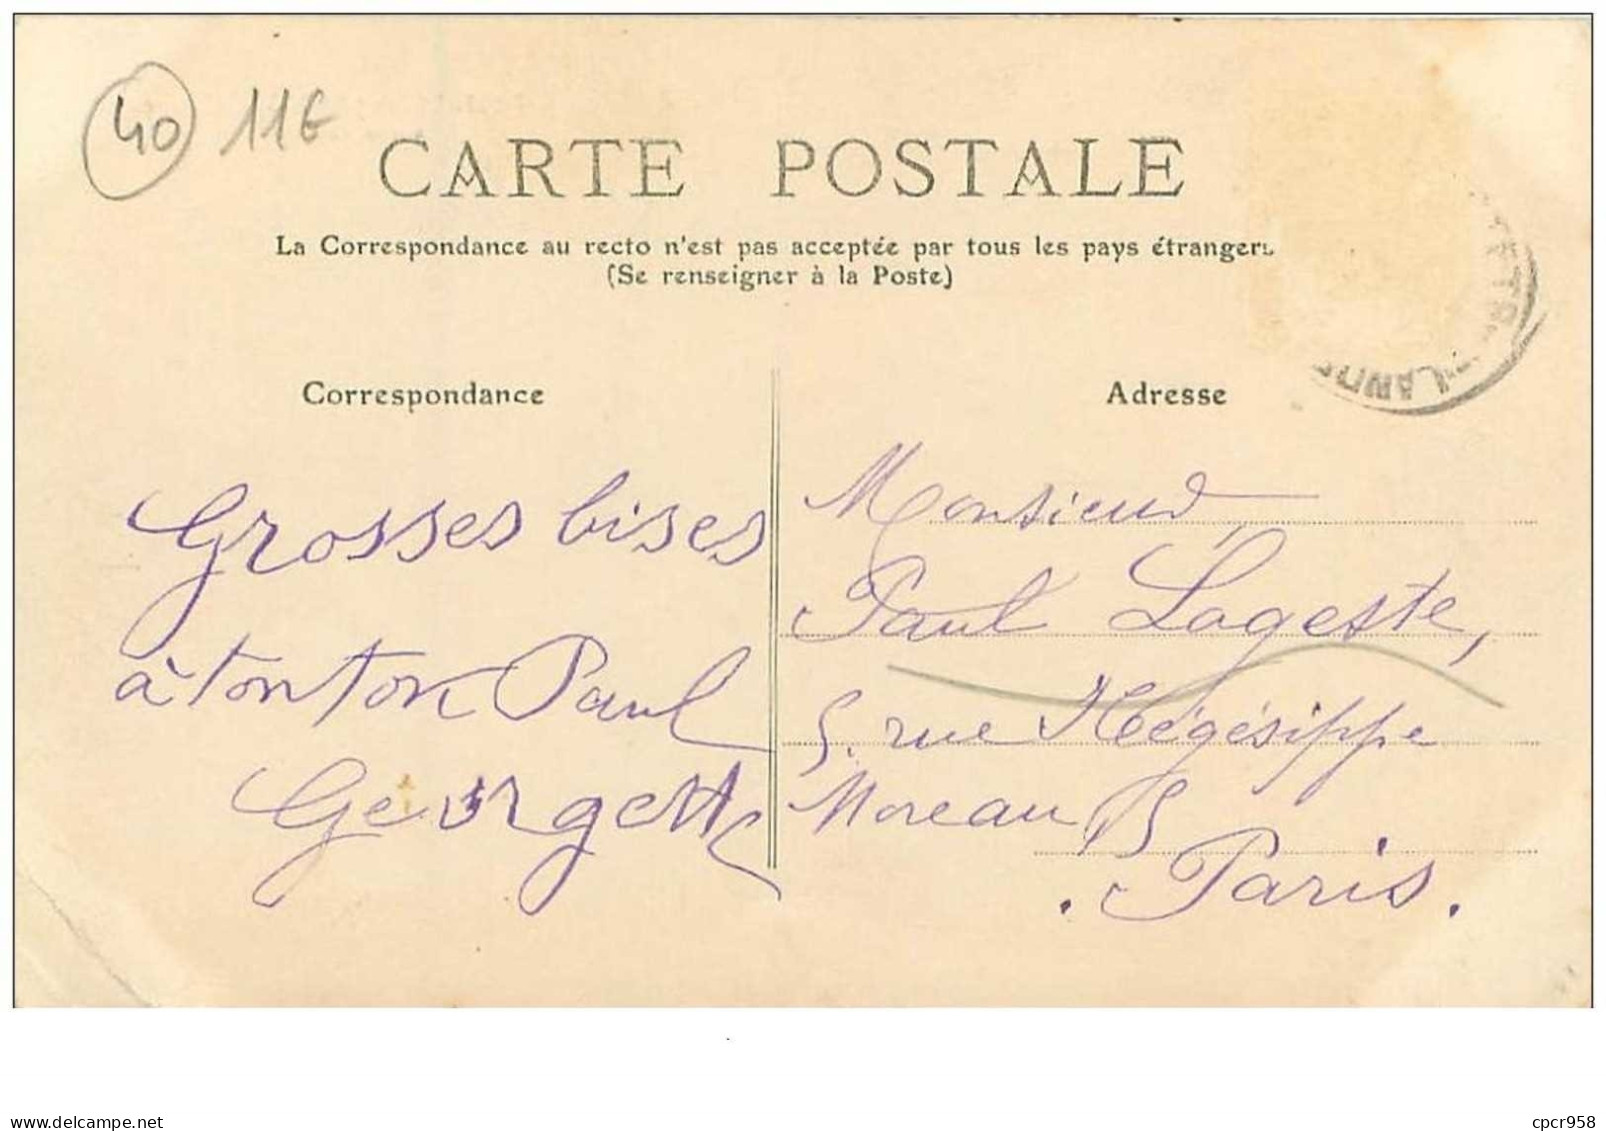 40 11€
CARTE POSTALE
La Correspondance au recto n'est pas acceptée par tous les pays étrangers
(Se renseigner à la Poste)
Correspondance
Adresse
Grosses bises
à tonton Paul
Georgette
Monsieur
Paul Lageste,
5, rue Hégésippe
Moreau
Paris.
delcampe.net
cpcr958